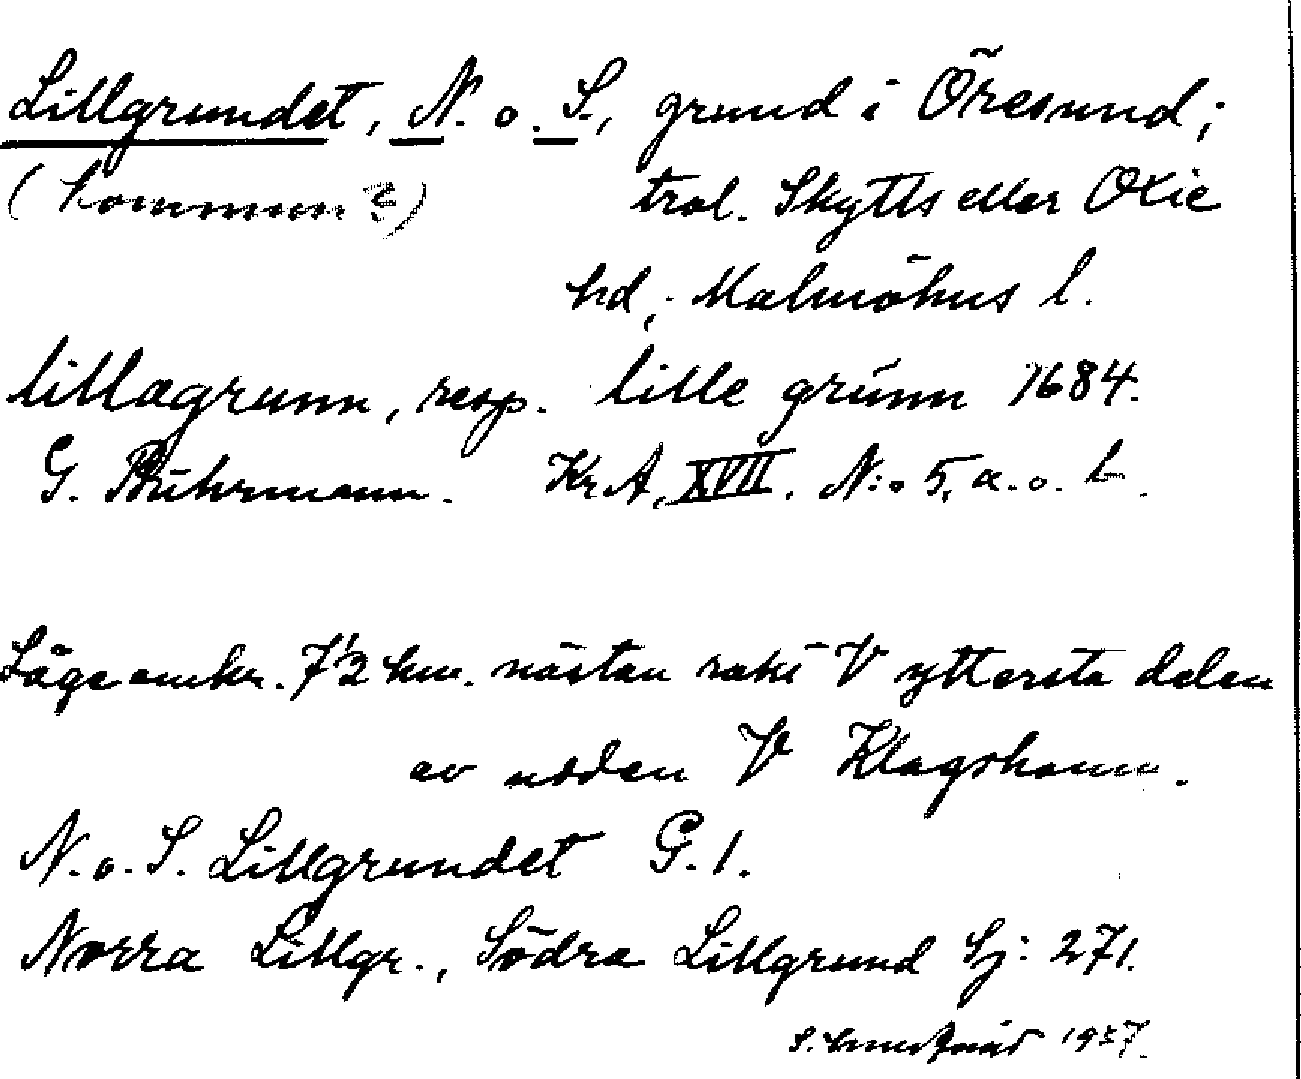 Lillgrundet, N. o. S., grund i Öresund;
(kommun?) trol. Skytts eller Oxie
hd, Malmöhus l.
lillagrunn, resp. lille grúnn 1684.
G. Buhrmann. KrA, XVII. N:o 5, a. o. b.
Läge omkr. 7 1/2 km. nästan rakt V yttersta delen
av udden V Klagshamn.
N. o. S. Lillgrundet G. 1.
Norra Lillgr., Södra Lillgrund Sj: 271.
S. 1937.